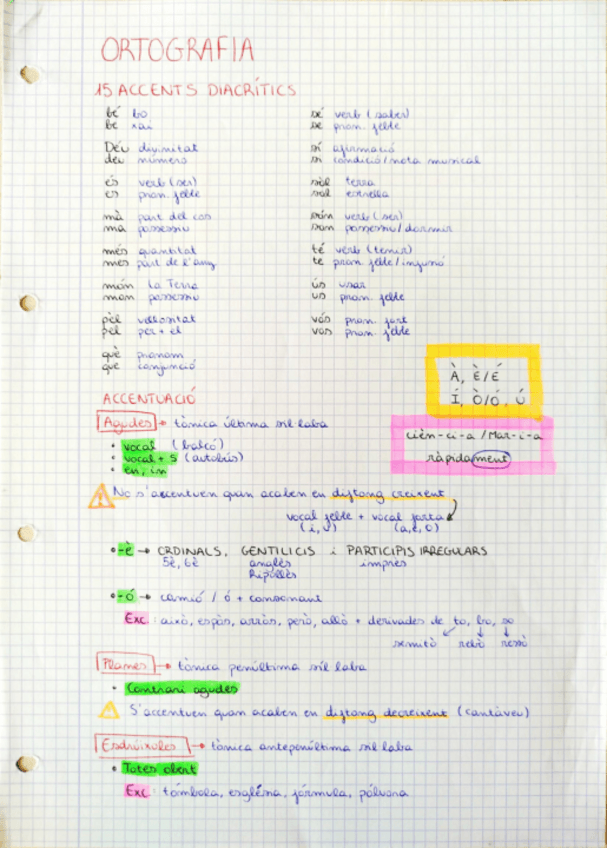 ORTOGRAFIA
15 ACCENTS DIACRÍTICS
bé bo
be xai
Déu divinitat
deu número
és verb (ser)
es pron. feble
mà part del cos
ma possessiu
més quantitat
mes part de l'any
món La Terra
mon possessiu
pèl vellositat
pel per + el
què pronom
que conjunció
sé verb (saber)
se pron. feble
sí afirmació
si condició / nota musical
sòl terra
sol estrella
són verb (ser)
son possessiu / dormir
té verb (tenir)
te pron. feble / infusió
ús usar
us pron. feble
vós pron. fort
vos pron. feble
À, È/É
Í, Ò/Ó, Ú
cièn-ci-a / Mar-i-a
ràpidament
ACCENTUACIÓ
Agudes → tònica última síl·laba
• vocal (balcó)
• vocal + s (autobús)
• en, in
! No s'accentuen quan acaben en diftong creixent
vocal feble + vocal forta
(i, u) (a, e, o)
• -è → ORDINALS, GENTILICIS i PARTICIPIS IRREGULARS
5è, 6è anglès imprès
Ripollès
• -ó → camió / ó + consonant
Exc: això, espòs, arròs, però, allò + derivades de to, bo, so
semitò rebò ressò
Planes → tònica penúltima síl·laba
• Contrari agudes
! S'accentuen quan acaben en diftong decreixent (cantàveu)
Esdrúixoles → tònica antepenúltima síl·laba
• Totes obert
Exc: tómbola, església, fórmula, pólvora